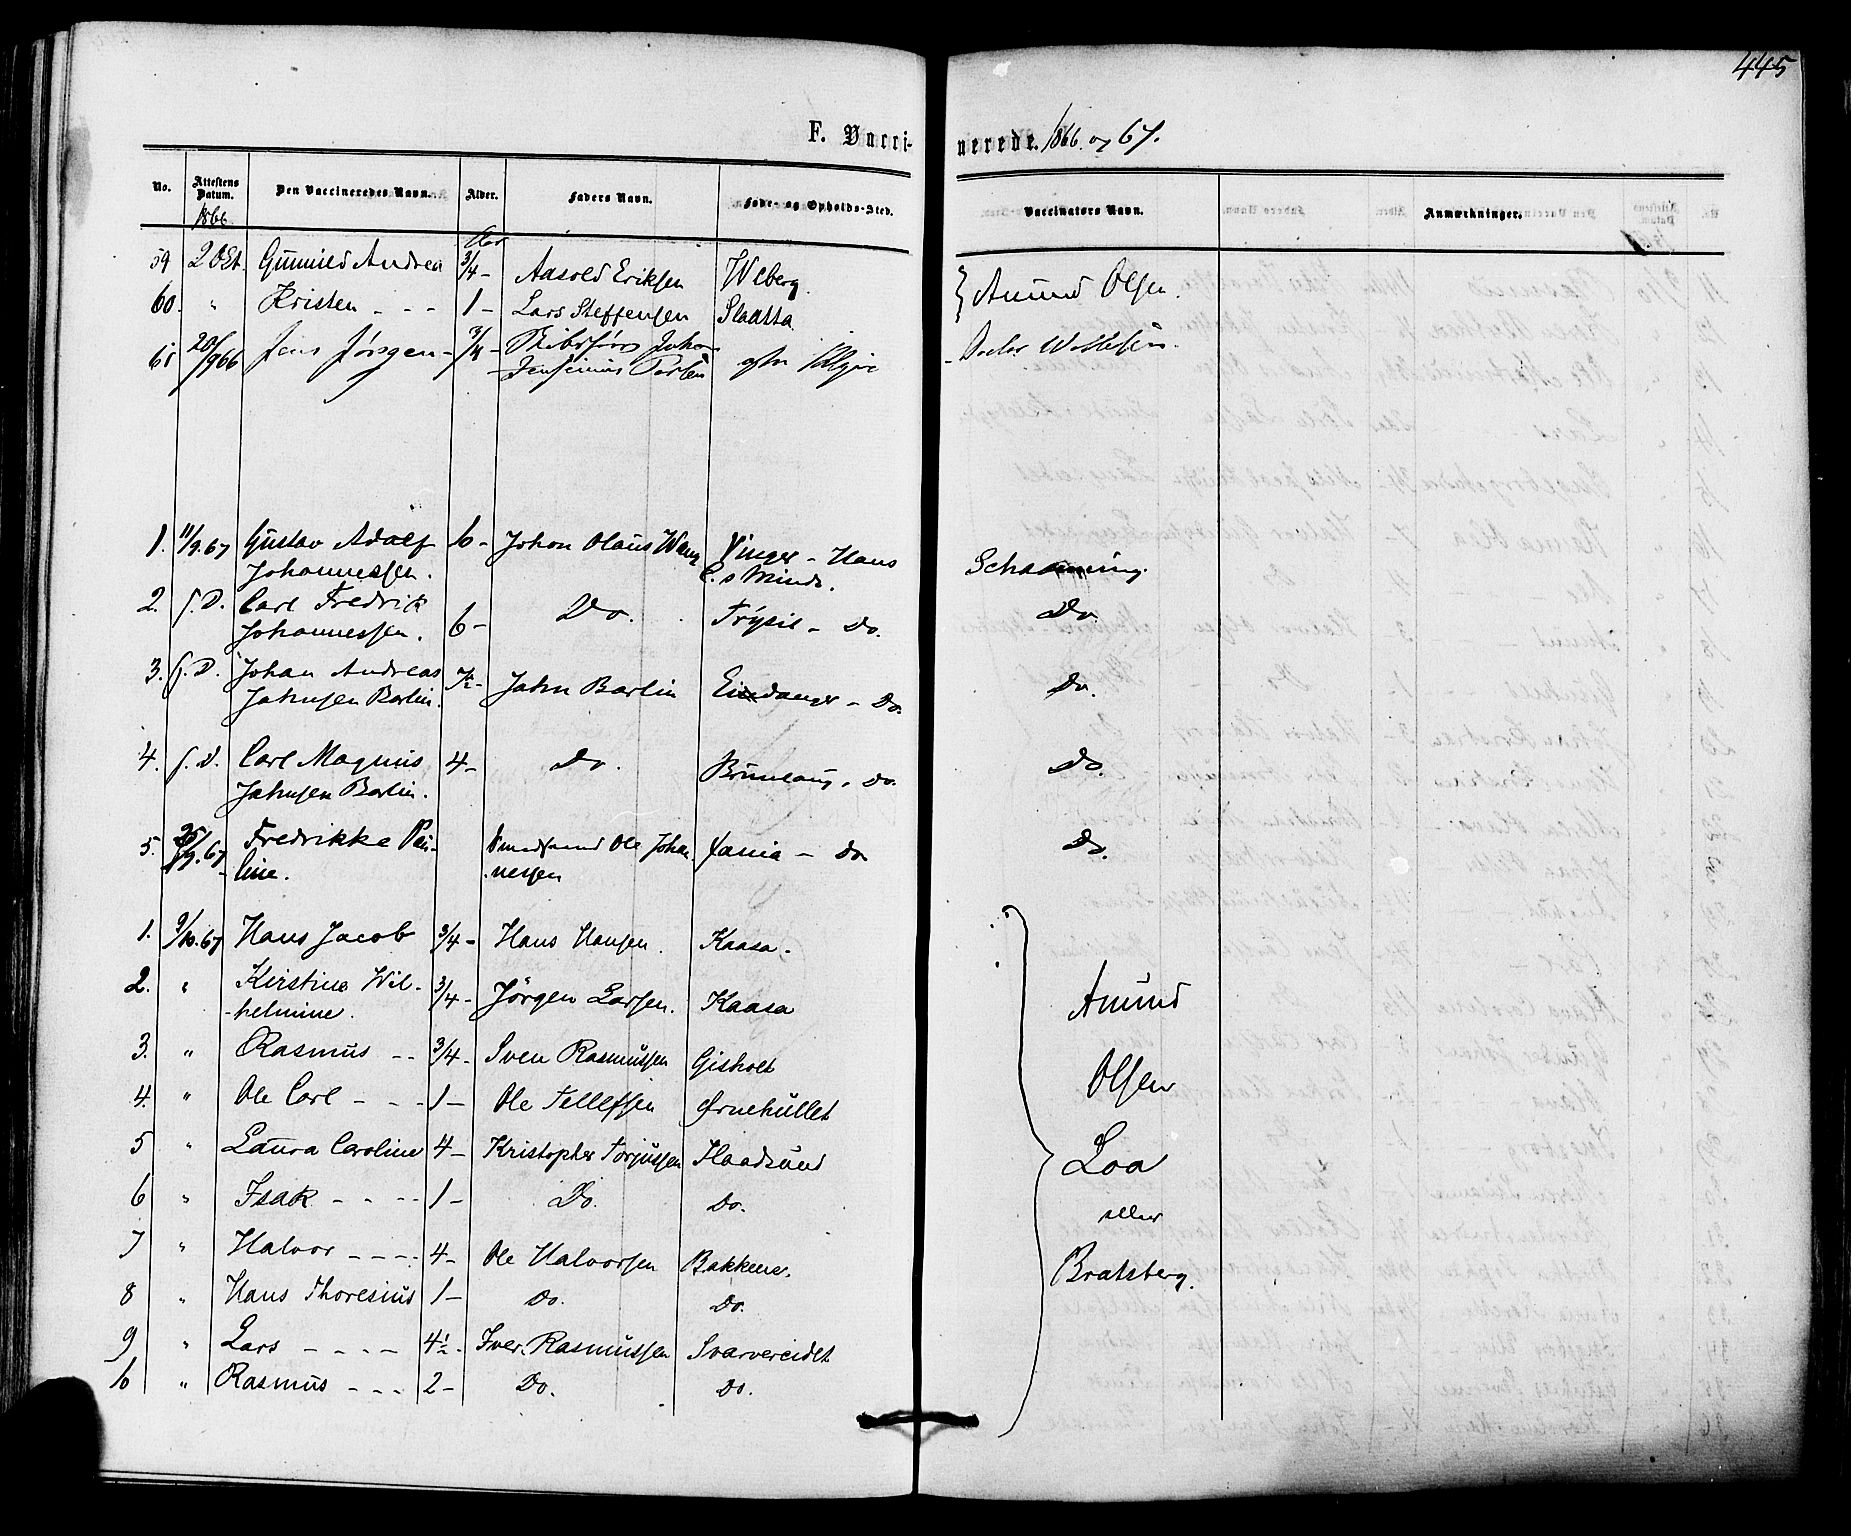 445
F. Vacci- nerede. 1866. og 67.
No. Attestens Datum. Den Vaccineredes Navn. Alder. Faders Navn. Føde- og Opholds-Sted. Vaccinators Navn. Anmærkninger.
1866 Aar
59 2 Oct. Gunnild Andrea 3/4 - Aasold Eriksen Weberg. Amund Olsen.
60. " Kristen - - - 1 - Lars Steffensen Slaatta
61 20/9 66 Jens Jørgen - 3/4 - Johan Doctor
1. 11/9.67 Gustav Adolf 6 - Johan Olaus Wang Vinger - Hans
Johannessen. Minde. Schaanning.
2. s. D. Carl Fredrik Do. Trysil - Do. Do.
Johannessen. 6 -
3. s. D. Johan Andreas Jahn Barlin Eidanger - Do. Do.
Jahnsen Barlin.
4. s. D. Carl Magnus 4 - Do. Brunlaug. Do. Do.
Jahnsen Barlin.
5. 25/9.67 Fredrikke Pau- Ole Johan- - Do Do.
line. nessen
1. 9/10.67 Hans Jacob 3/4 - Hans Hansen. Kaasa.
2. " Kirstine Wil- 3/4 - Jörgen Larsen. Kaasa Amund
-helmine.
3. " Rasmus - - 3/4 - Sven Rasmussen Gisholt
4. " Ole Carl - - - 1 - Ole Tellefsen Ørnehullet Olsen
5 " Laura Caroline 4 - Kristopher Torjussen Haadsund Loa
6 " Isak - - - - 1 - Do. Do. eller
7 " Halvor - - - - 4 - Ole Halvorsen Bakkene. Bratsberg.
8 " Hans Thoresius 1 - Do. Do.
9 " Lars - - - - 4 1/2 - Iver Rasmussen Svarvereidet
10 " Rasmus - - - 2 - Do. Do.